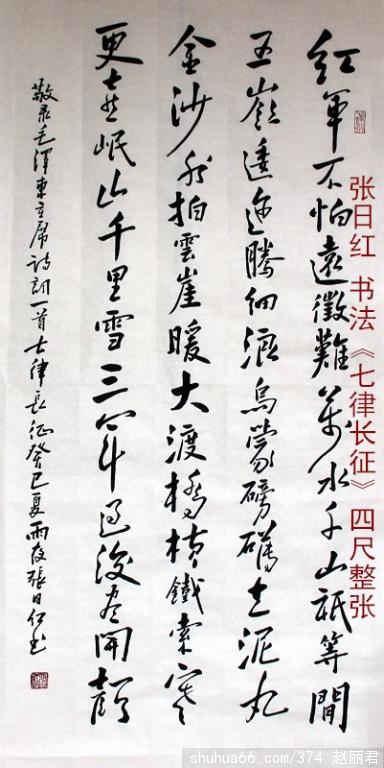 紅軍不怕遠徵難萬水千山祇等閒
五嶺逶迤騰細浪烏蒙磅礴走泥丸
金沙水拍雲崖暖大渡橋橫鐵索寒
更喜岷山千里雪三軍過後盡開顏
敬录毛澤東主席詩詞一首七律長征癸巳夏雨夜張日红书
张日红 书法《七律长征》四尺整张
shuhua66.com/374 赵丽君